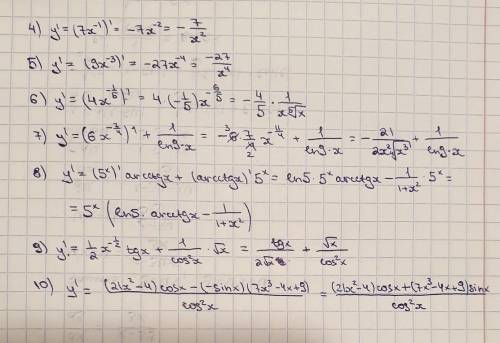 4) y' = (7x⁻¹)' = -7x⁻² = -7/x²
5) y' = (9x⁻³)' = -27x⁻⁴ = -27/x⁴
6) y' = (4x^(-1/5))' = 4·(-1/5)x^(-6/5) = -4/5 · 1/(x⁵√x)
7) y' = (6x^(-7/4))' + 1/(ln9·x) = -6·7/4 x^(-11/4) + 1/(ln9·x) = -21/(2x²⁴√x³) + 1/(ln9·x)
8) y' = (5ˣ)' arcctgx + (arcctgx)' 5ˣ = ln5·5ˣ arcctgx - 1/(1+x²) · 5ˣ =
= 5ˣ (ln5·arcctgx - 1/(1+x²))
9) y' = 1/2 x^(-1/2) tgx + 1/cos²x · √x = tgx/(2√x) + √x/cos²x
10) y' = ((21x²-4)cosx-(-sinx)(7x³-4x+9))/cos²x = ((21x²-4)cosx+(7x³-4x+9)sinx)/cos²x